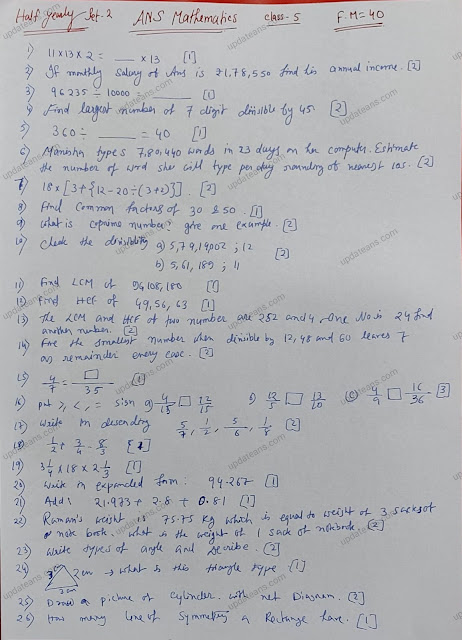 Half yearly Set-2 ANS Mathematics class-5 F.M=40
1) 11x13x2 = ___ x13 [1]
2) If monthly salary of Ans is ₹1,78,550 find his annual income. [2]
3) 96235 ÷ 10000 = ______ [1]
4) Find largest number of 7 digit divisible by 45. [2]
5) 360 ÷ ______ = 40 [1]
6) Manisha types 7,80,440 words in 23 days on her computer. Estimate
the number of word she will type per day rounding of nearest 10s. [2]
7) 18x[3+{12-20÷(3+2)}]. [2]
8) Find Common factors of 30 & 50. [1]
9) What is coprime number? give one example. [2]
10) Check the divisibility a) 5,79,14002 ; 12 [2]
b) 5,61,189 ; 11
11) Find LCM of 96,108,180 [1]
12) Find HCF of 49,56,63 [1]
13) The LCM and HCF of two number are 252 and 4, One No is 24 find
another number. [2]
14) the smallest number when divisible by 12, 48 and 60 leaves 7
as remainder every case. [2]
15) 4/7 = □/35 [1]
16) put >, <, = sign a) 4/15 □ 12/15 b) 12/5 □ 13/10 (c) 4/9 □ 16/36 [3]
17) Write in descending 5/7, 1/2, 5/6, 1/8 [2]
18) 1/2 + 3/4 - 8/3 [2]
19) 3 1/4 x 18 x 2 1/3 [1]
20) Write in expanded form: 94.267 [1]
21) Add: 21.973 + 2.8 + 0.81 [1]
22) Raman's weight is 75.75 kg which is equal to weight of 3 sacks of
note book. what is the weight of 1 sack of notebook. [2]
23) Write types of angle and Describe. [2]
24) 2cm 3cm → what is this triangle type [1]
25) Draw a picture of Cylinder with net Diagram. [2]
26) How many line of Symmetry a Rectange have. [1]
updateans.com